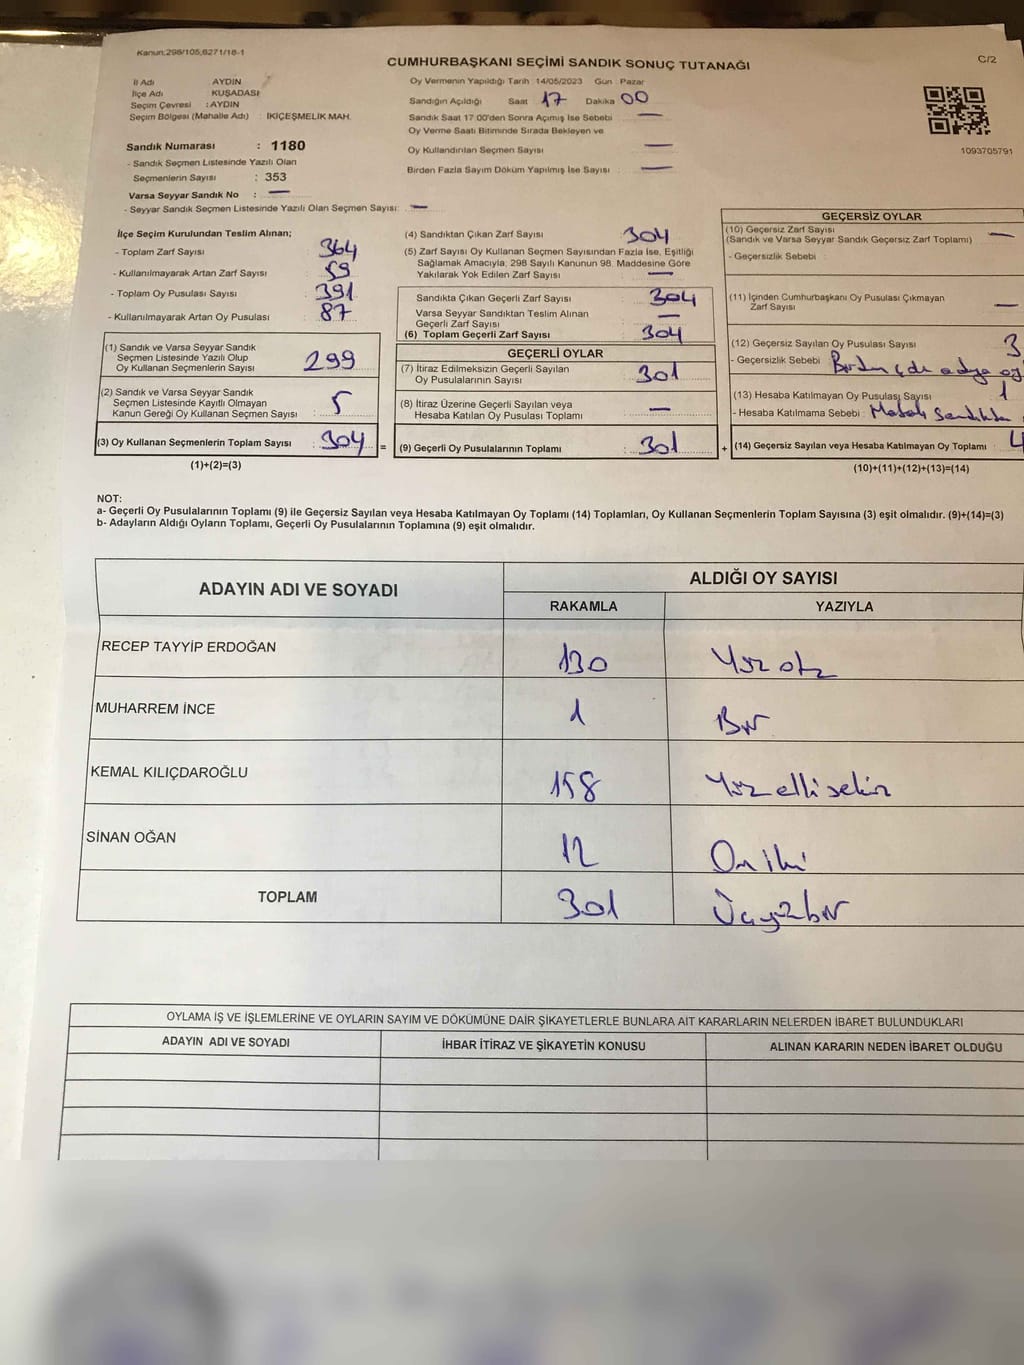 Kanun:298/105,6271/18-1
CUMHURBAŞKANI SEÇİMİ SANDIK SONUÇ TUTANAĞI
C/2
İl Adı AYDIN
İlçe Adı KUŞADASI
Seçim Çevresi : AYDIN
Seçim Bölgesi (Mahalle Adı) : İKİÇEŞMELİK MAH.
Sandık Numarası : 1180
- Sandık Seçmen Listesinde Yazılı Olan
Seçmenlerin Sayısı : 353
Varsa Seyyar Sandık No : —
- Seyyar Sandık Seçmen Listesinde Yazılı Olan Seçmen Sayısı: —
Oy Vermenin Yapıldığı Tarih 14/05/2023 Gün : Pazar
Sandığın Açıldığı Saat 17 Dakika 00
Sandık Saat 17:00'den Sonra Açımış İse Sebebi —
Oy Verme Saati Bitiminde Sırada Bekleyen ve
Oy Kullandırılan Seçmen Sayısı —
Birden Fazla Sayım Döküm Yapılmış İse Sayısı : —
1093705791
İlçe Seçim Kurulundan Teslim Alınan;
- Toplam Zarf Sayısı 364
- Kullanılmayarak Artan Zarf Sayısı 59
- Toplam Oy Pusulası Sayısı 391
- Kullanılmayarak Artan Oy Pusulası 87
(1) Sandık ve Varsa Seyyar Sandık
Seçmen Listesinde Yazılı Olup
Oy Kullanan Seçmenlerin Sayısı 299
(2) Sandık ve Varsa Seyyar Sandık
Seçmen Listesinde Kayıtlı Olmayan
Kanun Gereği Oy Kullanan Seçmen Sayısı 5
(3) Oy Kullanan Seçmenlerin Toplam Sayısı 304 =
(1)+(2)=(3)
(4) Sandıktan Çıkan Zarf Sayısı 304
(5) Zarf Sayısı Oy Kullanan Seçmen Sayısından Fazla İse, Eşitliği
Sağlamak Amacıyla, 298 Sayılı Kanunun 98. Maddesine Göre
Yakılarak Yok Edilen Zarf Sayısı —
Sandıkta Çıkan Geçerli Zarf Sayısı 304
Varsa Seyyar Sandıktan Teslim Alınan
Geçerli Zarf Sayısı —
(6) Toplam Geçerli Zarf Sayısı 304
GEÇERLİ OYLAR
(7) İtiraz Edilmeksizin Geçerli Sayılan
Oy Pusulalarının Sayısı 301
(8) İtiraz Üzerine Geçerli Sayılan veya
Hesaba Katılan Oy Pusulası Toplamı —
(9) Geçerli Oy Pusulalarının Toplamı : 301 +
GEÇERSİZ OYLAR
(10) Geçersiz Zarf Sayısı
(Sandık ve Varsa Seyyar Sandık Geçersiz Zarf Toplamı) —
- Geçersizlik Sebebi :
(11) İçinden Cumhurbaşkanı Oy Pusulası Çıkmayan
Zarf Sayısı —
(12) Geçersiz Sayılan Oy Pusulası Sayısı 3
- Geçersizlik Sebebi :
(13) Hesaba Katılmayan Oy Pusulası Sayısı 1
- Hesaba Katılmama Sebebi :
(14) Geçersiz Sayılan veya Hesaba Katılmayan Oy Toplamı 4
(10)+(11)+(12)+(13)=(14)
NOT:
a- Geçerli Oy Pusulalarının Toplamı (9) ile Geçersiz Sayılan veya Hesaba Katılmayan Oy Toplamı (14) Toplamları, Oy Kullanan Seçmenlerin Toplam Sayısına (3) eşit olmalıdır. (9)+(14)=(3)
b- Adayların Aldığı Oyların Toplamı, Geçerli Oy Pusulalarının Toplamına (9) eşit olmalıdır.
ADAYIN ADI VE SOYADI ALDIĞI OY SAYISI
RAKAMLA YAZIYLA
RECEP TAYYİP ERDOĞAN 130 Yüz otuz
MUHARREM İNCE 1 Bir
KEMAL KILIÇDAROĞLU 158 Yüz elli sekiz
SİNAN OĞAN 12 On iki
TOPLAM 301 Üçyüzbir
OYLAMA İŞ VE İŞLEMLERİNE VE OYLARIN SAYIM VE DÖKÜMÜNE DAİR ŞİKAYETLERLE BUNLARA AİT KARARLARIN NELERDEN İBARET BULUNDUKLARI
ADAYIN ADI VE SOYADI İHBAR İTİRAZ VE ŞİKAYETİN KONUSU ALINAN KARARIN NEDEN İBARET OLDUĞU